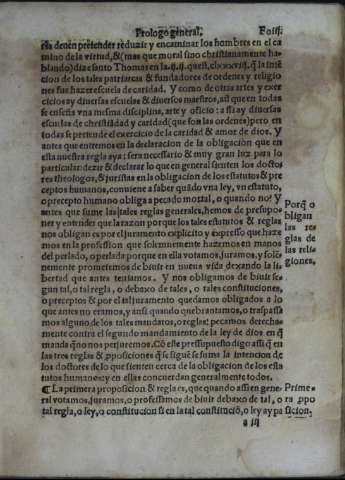 Prologo general. Folij.
esta deuen pretender reduzir y encaminar los hombres en el ca
mino de la virtud, &(mas que moral sino christianamente ha-
blando) dize santo Thomas en la.ij.ij.quest.clxxxviij. q̃ la intẽ
cion de los tales patriarcas & fundadores de ordenes y religio
nes fue hazer escuela de caridad. Y como de otras artes y exer
cicios ay diuersas escuelas & diuersos maestros, assi que en todas
se enseña vna mesma disciplina, arte y oficio: assi ay diuersas
escuelas de christiãdad y caridad (que son las ordenes) pero en
todas se pretende el exercicio de la caridad & amor de dios. Y
antes que entremos en la declaracion de la obligacion que en
esta nuestra regla aya: sera necessario & muy gran luz para lo
particular: dezir & declarar lo que en general sienten los docto
res theologos, & juristas en la obligacion de los estatutos & pre
ceptos humanos, conuiene a saber quãdo vna ley, vn estatuto,
o precepto humano obliga a pecado mortal, o quando no? Y
antes que sume las tales reglas generales, hemos de presupo-
ner y entender que la razon porque los tales estatutos & reglas
nos obligan es por el juramento explicito y expresso que haze
mos en la profession que solemnemente hazemos en manos
del perlado, o perlada porque en ella votamos, juramos, y solẽ-
nemente prometemos de biuir en nueua vida dexando la li-
bertad que antes teniamos. Y nos obligamos de biuir se-
gun tal, o tal regla, o debaxo de tales, o tales constituciones,
o preceptos & por el tal juramento quedamos obligados a lo
que antes no eramos, y ansi quando quebrantamos, o traspassa
mos alguno de los tales mandatos, o reglas: pecamos derecha-
mente contra el segundo mandamiento de la ley de dios en q̃
manda q̃ no nos perjuremos. Cõ este presupuesto digo assi q̃ en
las tres reglas & pposiciones q̃ se sigue se suma la intencion de
los doctores de lo que sienten cerca de la obligacion de los esta
tutos humanos: y en ellas concuerdan generalmente todos.
¶ La primera proposicion & regla es, que quando assi en gene
ral votamos, juramos, o professamos de biuir debaxo de tal, o
tal regla, o ley, o constitucion si en la tal constituciõ, o ley ay pa
a iij
Porq̃ o
bligan
las re
glas de
las reli
giones.
Prime-
ra ppo
sicion.